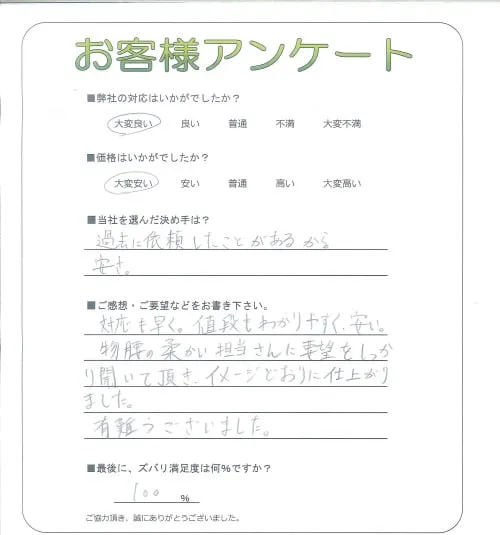 お客様アンケート
■弊社の対応はいかがでしたか？
大変良い 良い 普通 不満 大変不満
■価格はいかがでしたか？
大変安い 安い 普通 高い 大変高い
■当社を選んだ決め手は？
過去に依頼したことがあるから
安さ。
■ご感想・ご要望などをお書き下さい。
対応も早く。値段もわかりやすく、安い。
物腰の柔かい担当さんに要望をしっか
り聞いて頂き、イメージどおりに仕上がり
ました。
有難うございました。
■最後に、ズバリ満足度は何%ですか？
100 %
ご協力頂き、誠にありがとうございました。